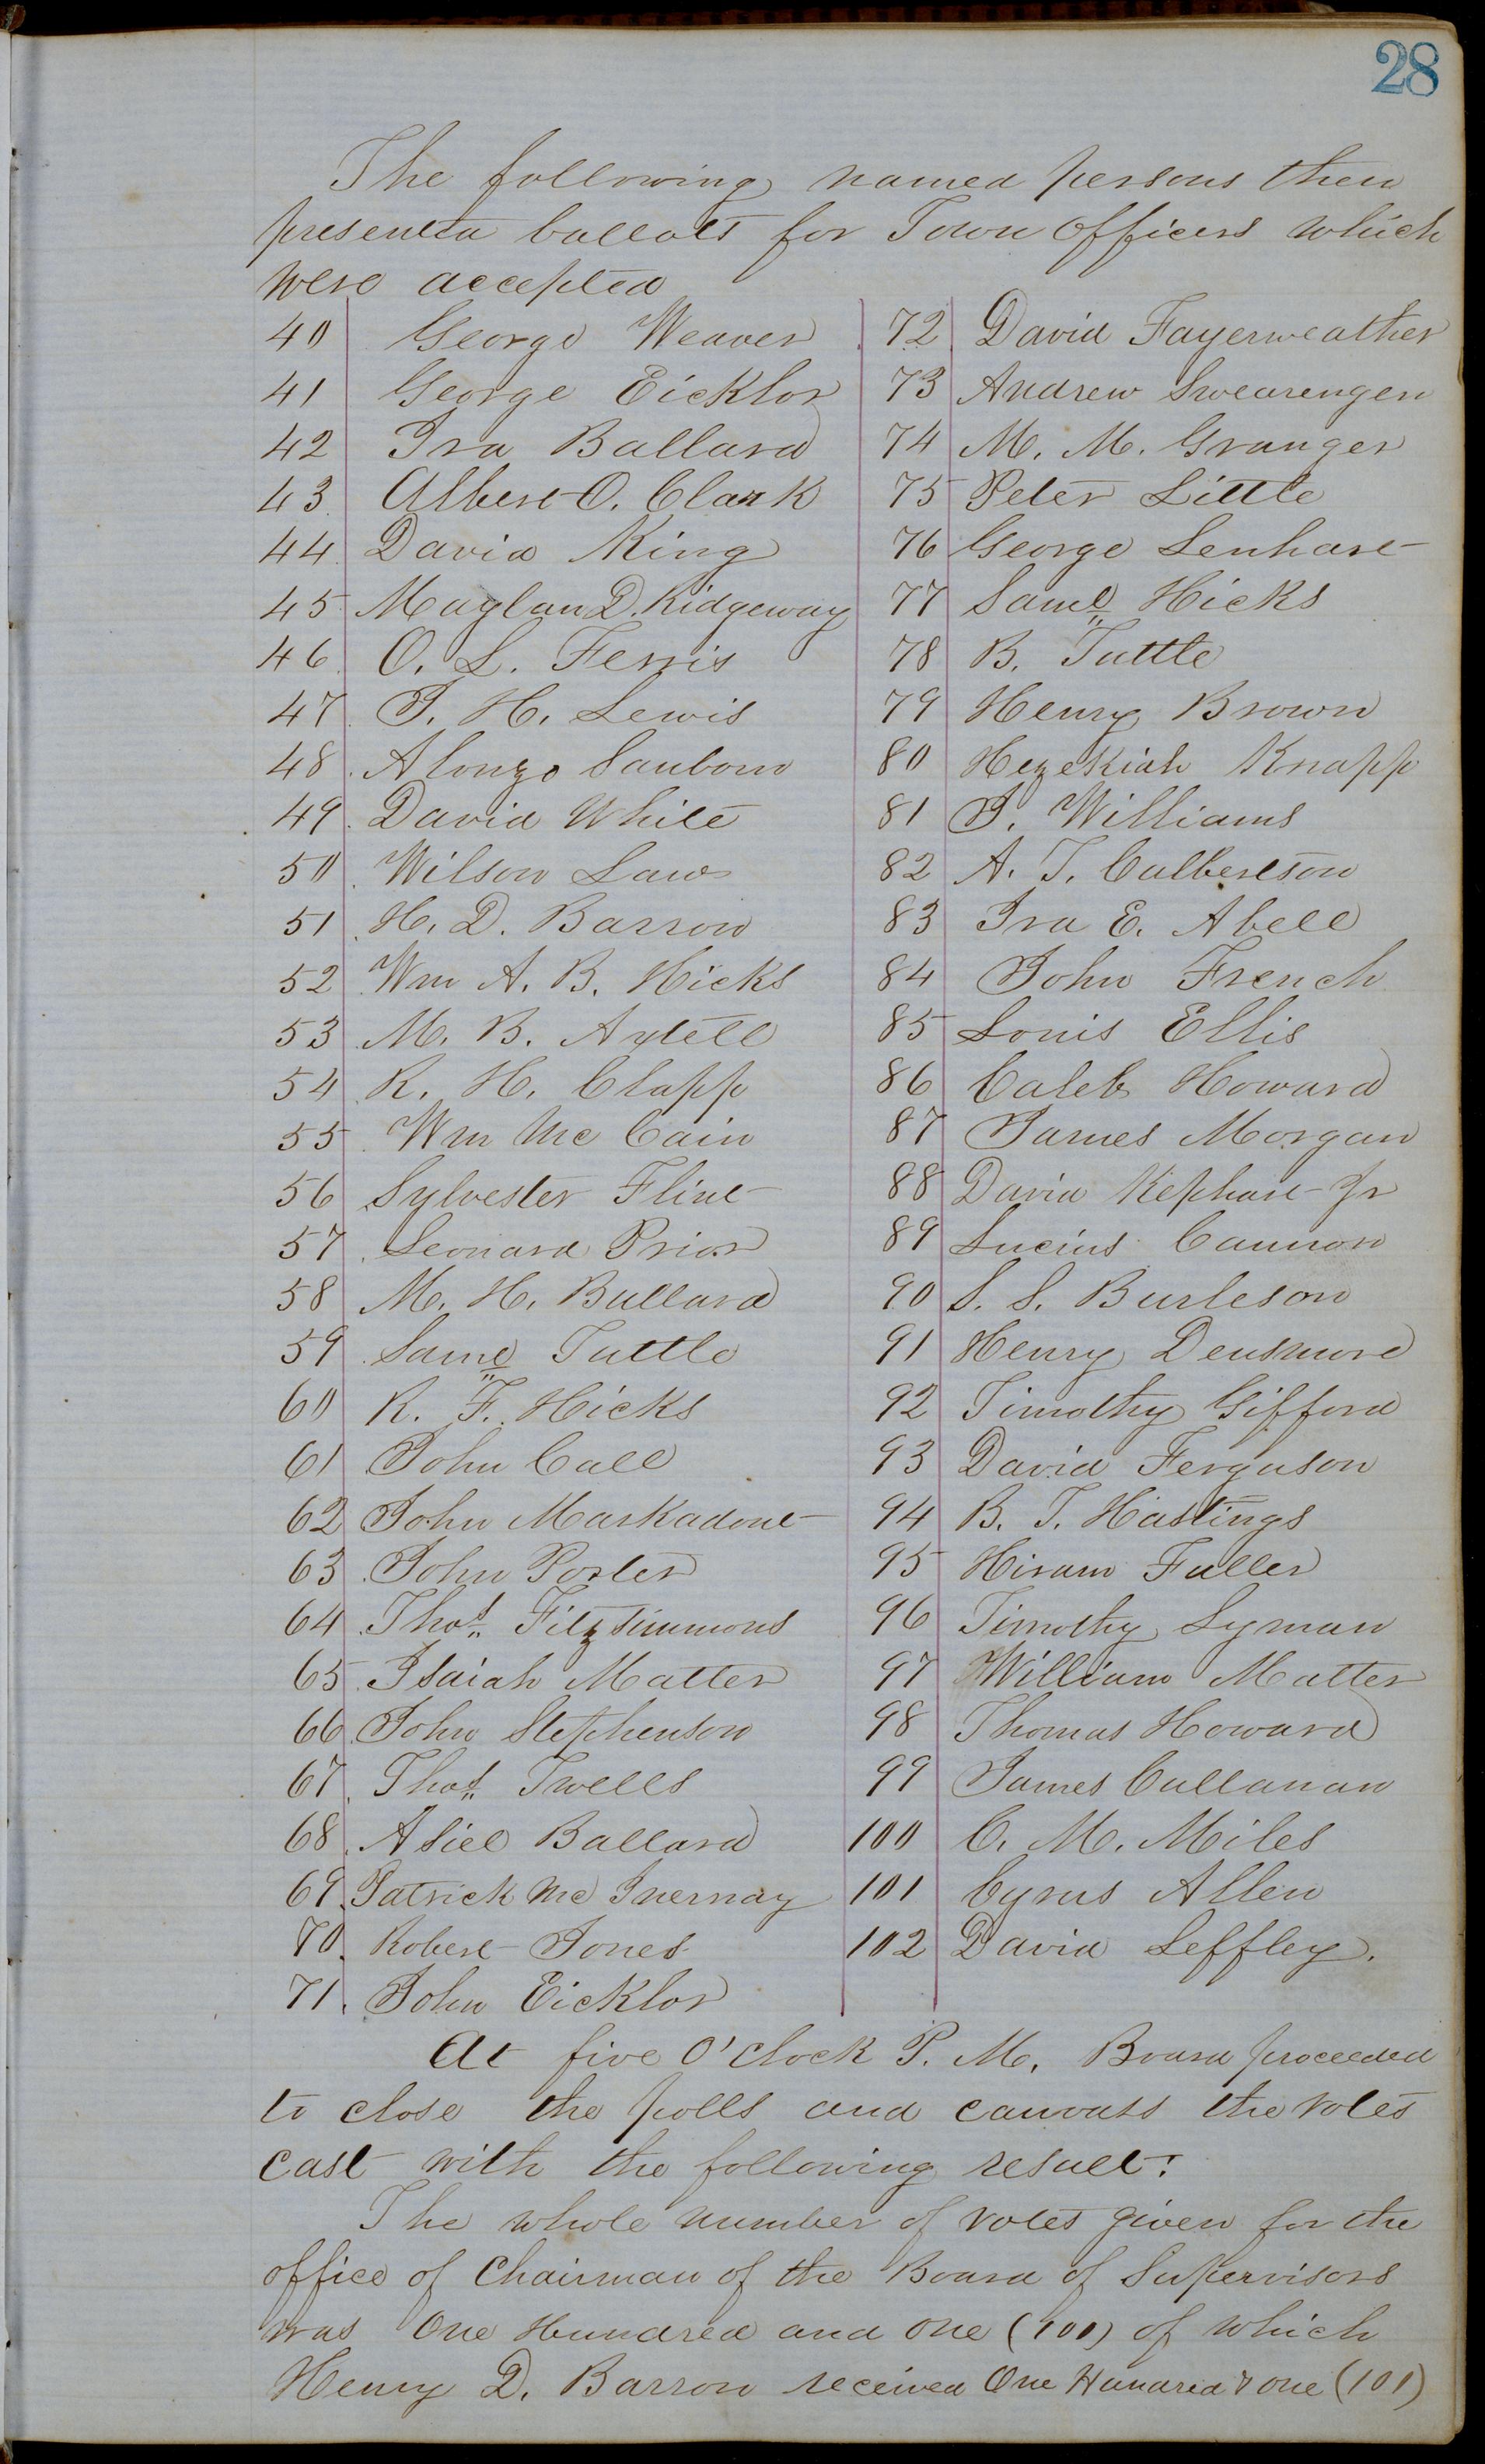 28
The following named persons then
presented ballots for Town Officers which
were accepted
40 George Weaver
41 George Eicklor
42 Ira Ballard
43 Albert O. Clark
44 David King
45 Maylan D. Ridgeway
46 O. L. Ferris
47 J. H. Lewis
48 Alonzo Sanborn
49 David White
50 Wilson Law
51 H. D. Barron
52 Wm A. B. Hicks
53 M. B. Axtell
54 R. H. Clapp
55 Wm Mc Cain
56 Sylvester Flint
57 Leonard Prior
58 M. H. Bullard
59 Saml Tuttle
60 R. F. Hicks
61 John Call
62 John Maskadont
63 John Porter
64 Thos. Fitzsimmons
65 Isaiah Matter
66 John Stephenson
67 Thos. Twells
68 Asiel Ballard
69 Patrick Mc Inernay
70 Robert Jones
71 John Eicklor
72 David Fayerweather
73 Andrew Swearengen
74 M. M. Granger
75 Peter Little
76 George Lenhart
77 Saml Hicks
78 B. Tuttle
79 Henry Brown
80 Hezekiah Knapp
81 J. Williams
82 A. T. Culbertson
83 Ira E. Abell
84 John French
85 Louis Ellis
86 Caleb Howard
87 James Morgan
88 David Kephart Jr
89 Lucius Cannon
90 S. S. Burleson
91 Henry Densmore
92 Timothy Gifford
93 David Ferguson
94 B. T. Hastings
95 Hiram Fuller
96 Timothy Lyman
97 William Matter
98 Thomas Howard
99 James Callanan
100 C. M. Miles
101 Cyrus Allen
102 David Leffley.
At five O'clock P. M. Board proceeded
to close the polls and canvass the votes
cast with the following result:
The whole number of votes given for the
office of Chairman of the Board of Supervisors
was One Hundred and one (101) of which
Henry D. Barron received One Hundred & one (101)